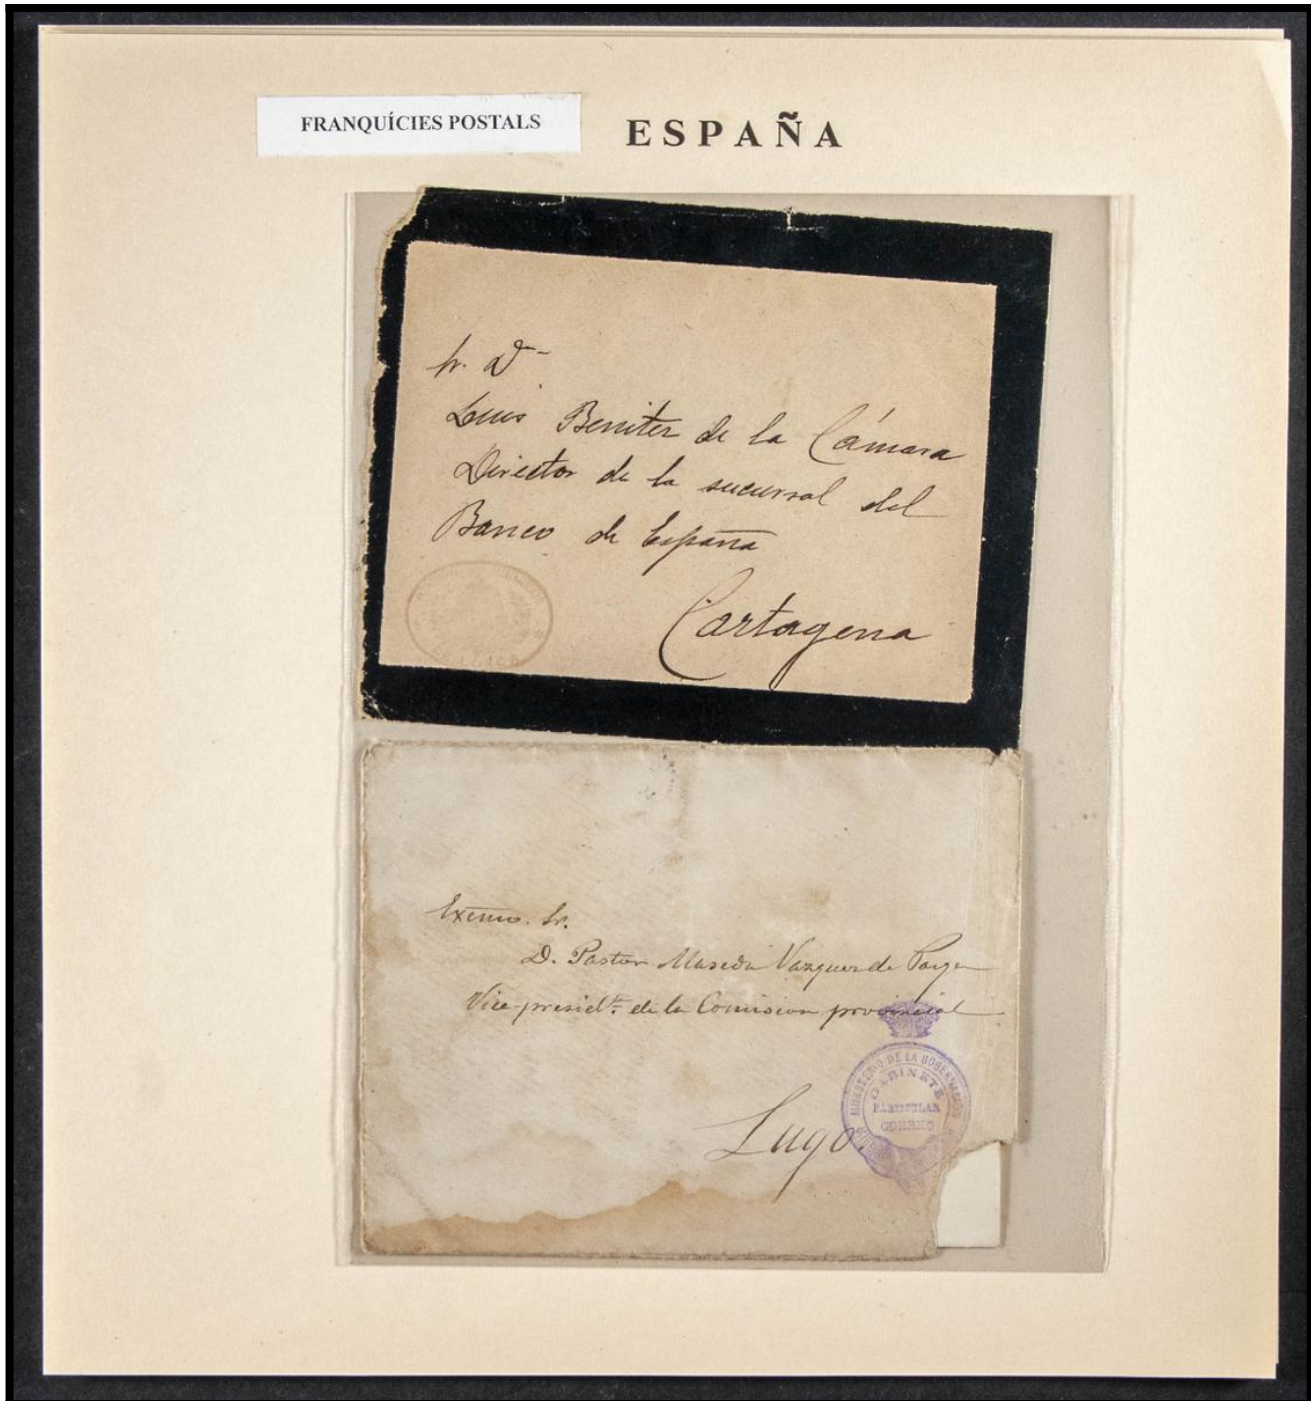 FRANQUÍCIES POSTALS
ESPAÑA
Sr. D
Luis Benitez de la Cámara
Director de la sucursal del
Banco de España
Cartagena
Excmo. Sr.
D. Pastor Maseda Vazquez de Parga
Vice-presidte. de la Comision provincial
MINISTERIO DE LA GOBERNACIÓN
GABINETE
PARTICULAR
CORREO
Lugo.